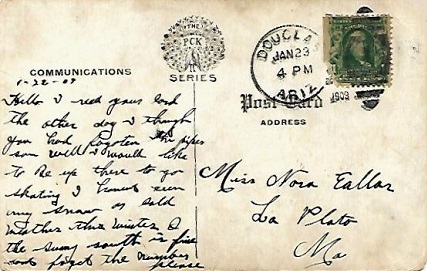 THE
PCK
SERIES
COMMUNICATIONS
1-22-09
Hello I recd yours card
the other day I though
you had forgoten the pipes
som well I would like
to be up there to go
skating I havnt seen
any snow or cold
weather this winter
the sunny south is fine
dont forget the number
please
DOUGLAS
JAN 23
4 PM
ARIZ.
1909
Post Card
ADDRESS
Miss Nora Eallar
La Plato
Mo